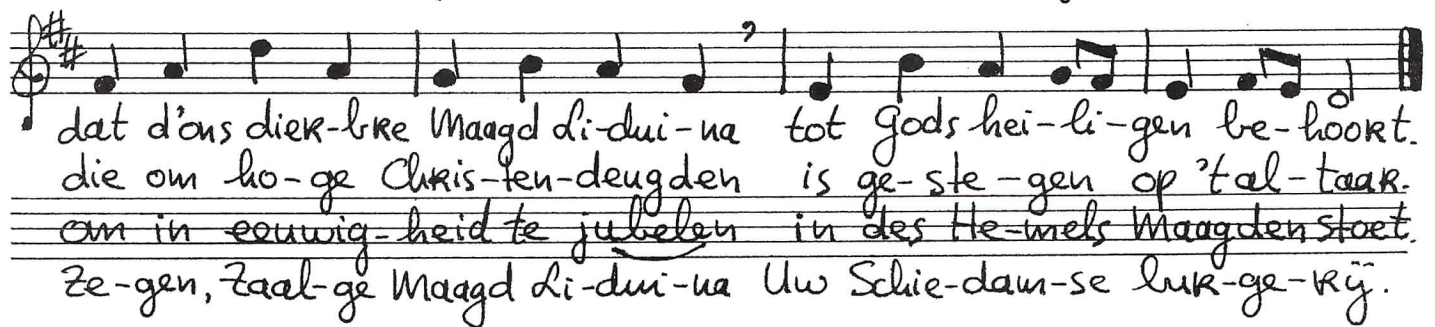 dat d'ons dier-bre Maagd Li-dui-na tot Gods hei-li-gen be-hoort.
die om ho-ge Chris-ten-deugden is ge-ste-gen op 't al-taar.
om in eeuwig-heid te jubelen in des He-mels Maagdenstoet.
Ze-gen, Zaal-ge Maagd Li-dui-na Uw Schie-dam-se bur-ge-rij.